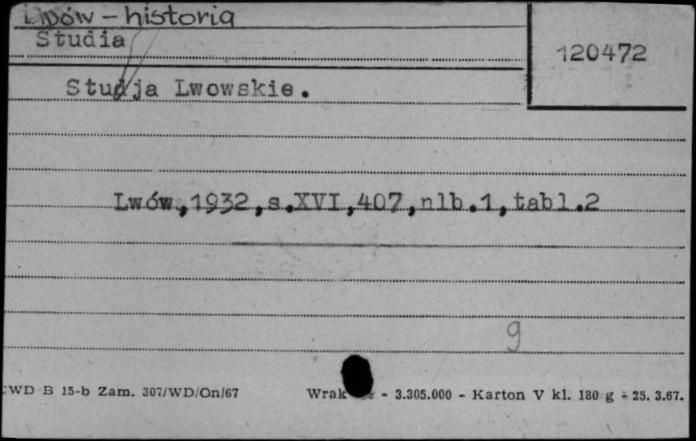 Lwów - historia
Studia
120472
Studja Lwowskie.
Lwów, 1932, s.XVI, 407, nlb.1, tabl.2
9
WD B 15-b Zam. 307/WD/On/67
- 3.305.000 - Karton V kl. 180 g - 25. 3.67.